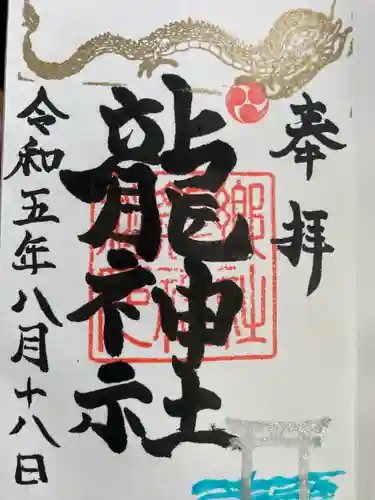 奉拝
龍神社
令和五年八月十八日